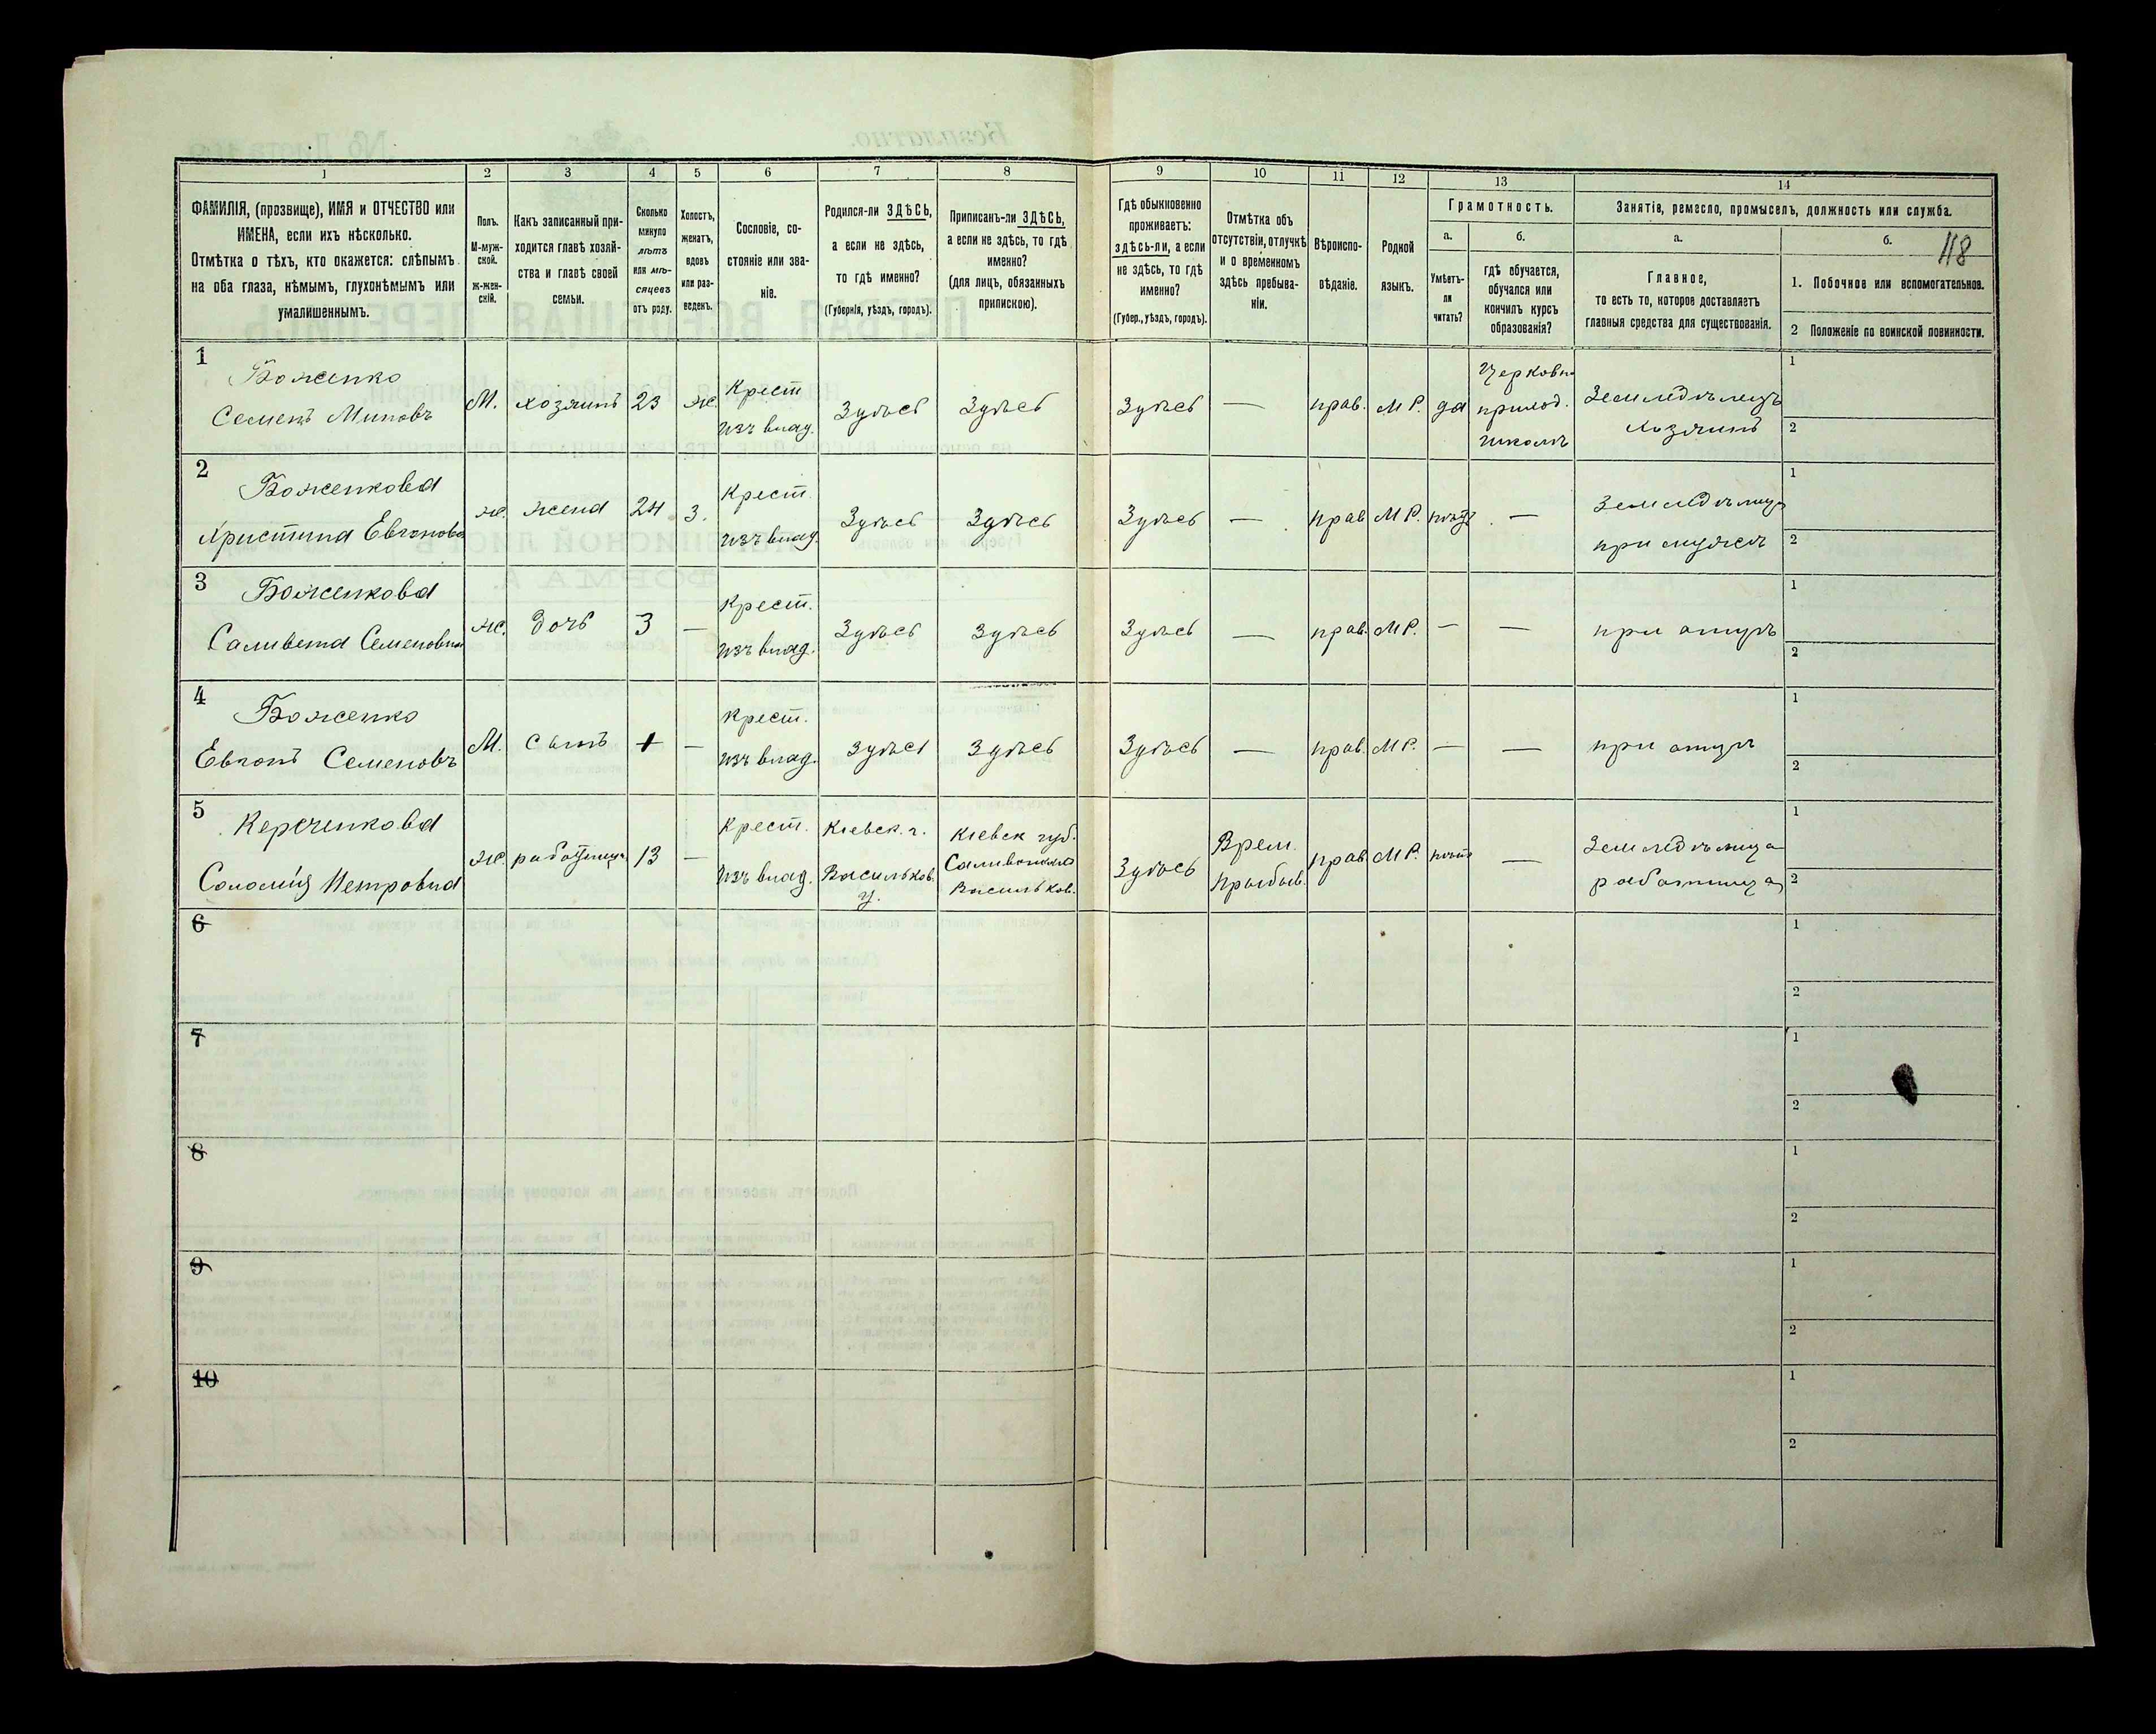 118
1 2 3 4 5 6 7 8 9 10 11 12 13 14
ФАМИЛІЯ, (прозвище), ИМЯ и ОТЧЕСТВО или
ИМЕНА, если ихъ нѣсколько.
Отмѣтка о тѣхъ, кто окажется: слѣпымъ
на оба глаза, нѣмымъ, глухонѣмымъ или
умалишеннымъ.
Полъ.
М-муж-
ской.
ж-жен-
скій.
Какъ записанный при-
ходится главѣ хозяй-
ства и главѣ своей
семьи.
Сколько
минуло
лѣтъ
или мѣ-
сяцевъ
отъ роду.
Холостъ,
женатъ,
вдовъ
или раз-
веденъ.
Сословіе, со-
стояніе или зва-
ніе.
Родился-ли ЗДѢСЬ,
а если не здѣсь,
то гдѣ именно?
(Губернія, уѣздъ, городъ).
Приписанъ-ли ЗДѢСЬ,
а если не здѣсь, то гдѣ
именно?
(для лицъ, обязанныхъ
припискою).
Гдѣ обыкновенно
проживаетъ:
здѣсь-ли, а если
не здѣсь, то гдѣ
именно?
(Губер., уѣздъ, городъ).
Отмѣтка объ
отсутствіи, отлучкѣ
и о временномъ
здѣсь пребыва-
ніи.
Вѣроиспо-
вѣданіе.
Родной
языкъ.
Грамотность.
а.
Умѣетъ-
ли
читать?
б.
гдѣ обучается,
обучался или
кончилъ курсъ
образованія?
Занятіе, ремесло, промыселъ, должность или служба.
а.
Главное,
то есть то, которое доставляетъ
главныя средства для существованія.
б.
1. Побочное или вспомогательное.
2 Положеніе по воинской повинности.
1
Боженко
Семенъ Миновъ
М.
хозяинъ
23
ж.
Крест
изъ влад.
Здѣсь
Здѣсь
Здѣсь
—
прав.
МР.
да
Церковн.
приход.
школѣ
Земледѣлецъ
Хозяинъ
1
2
2
Боженкова
Христина Евгенова
ж.
жена
24
з.
Крест.
изъ влад.
Здѣсь
Здѣсь
Здѣсь
—
прав
МР.
нѣтъ
—
Земледѣлица
при мужѣ
1
2
3
Боженкова
Саливета Семенова
ж.
дочь
3
—
Крест.
изъ влад.
Здѣсь
Здѣсь
Здѣсь
—
прав.
МР.
—
—
при отцѣ
1
2
4
Боженко
Семеновъ
М.
сынъ
1
—
Крест.
изъ влад.
Здѣсь
Здѣсь
Здѣсь
—
прав.
МР.
—
—
при отцѣ
1
2
5
Соломія Петровна
ж.
работница
13
—
Крест.
изъ влад.
Кіевск. г.
Васильков.
у.
Кіевск губ.
Васильков.
Здѣсь
Врем.
Прибыв.
прав
МР.
нѣтъ
—
Земледѣлица
работница
1
2
6
1
2
7
1
2
8
1
2
9
1
2
10
1
2